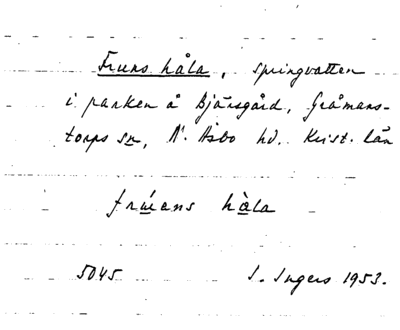 Fruns håla, springvatten
i parken å Bjärsgård, Gråmans-
torps sn, N. Åsbo hd. Krist. län
frúans hàla
5045 I. Ingers 1953.